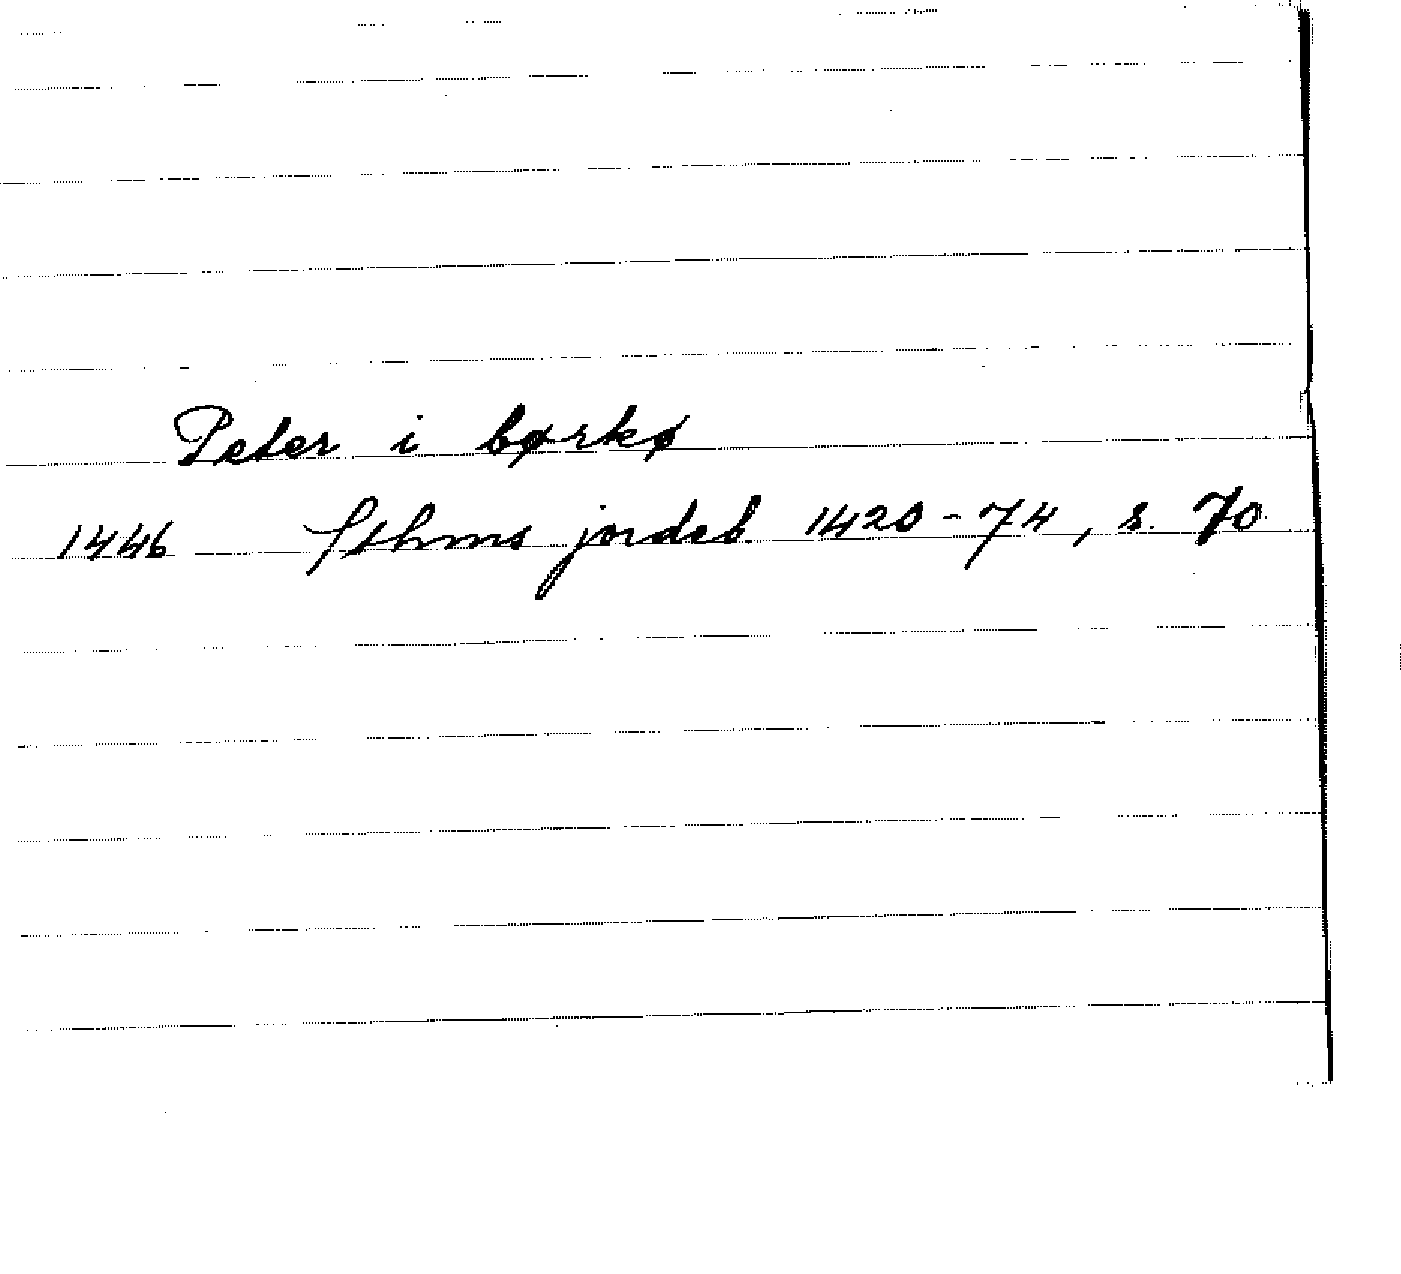 Peter i børkø
1446 Sthms jordeb 1420-74, s. 70